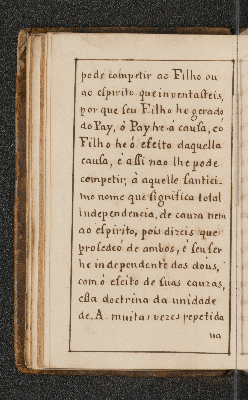 pode competir ao Filho ou
ao espirito que inventasteis,
por que seu Filho he gerado
do Pay, ó Pay he á causa, eo
Filho he ó efeito daquella
causa, é assi nao lhe pode
competir, á aquelle santici-
mo nome que significa total
independencia, de cauza nem
ao espirito, pois dizeis que
prosedeó de ambos, é seu ser
he independente dos dous,
com ó efeito de suas cauzas,
essa doctrina da unidade
de. A. muitas vezes repetida
na